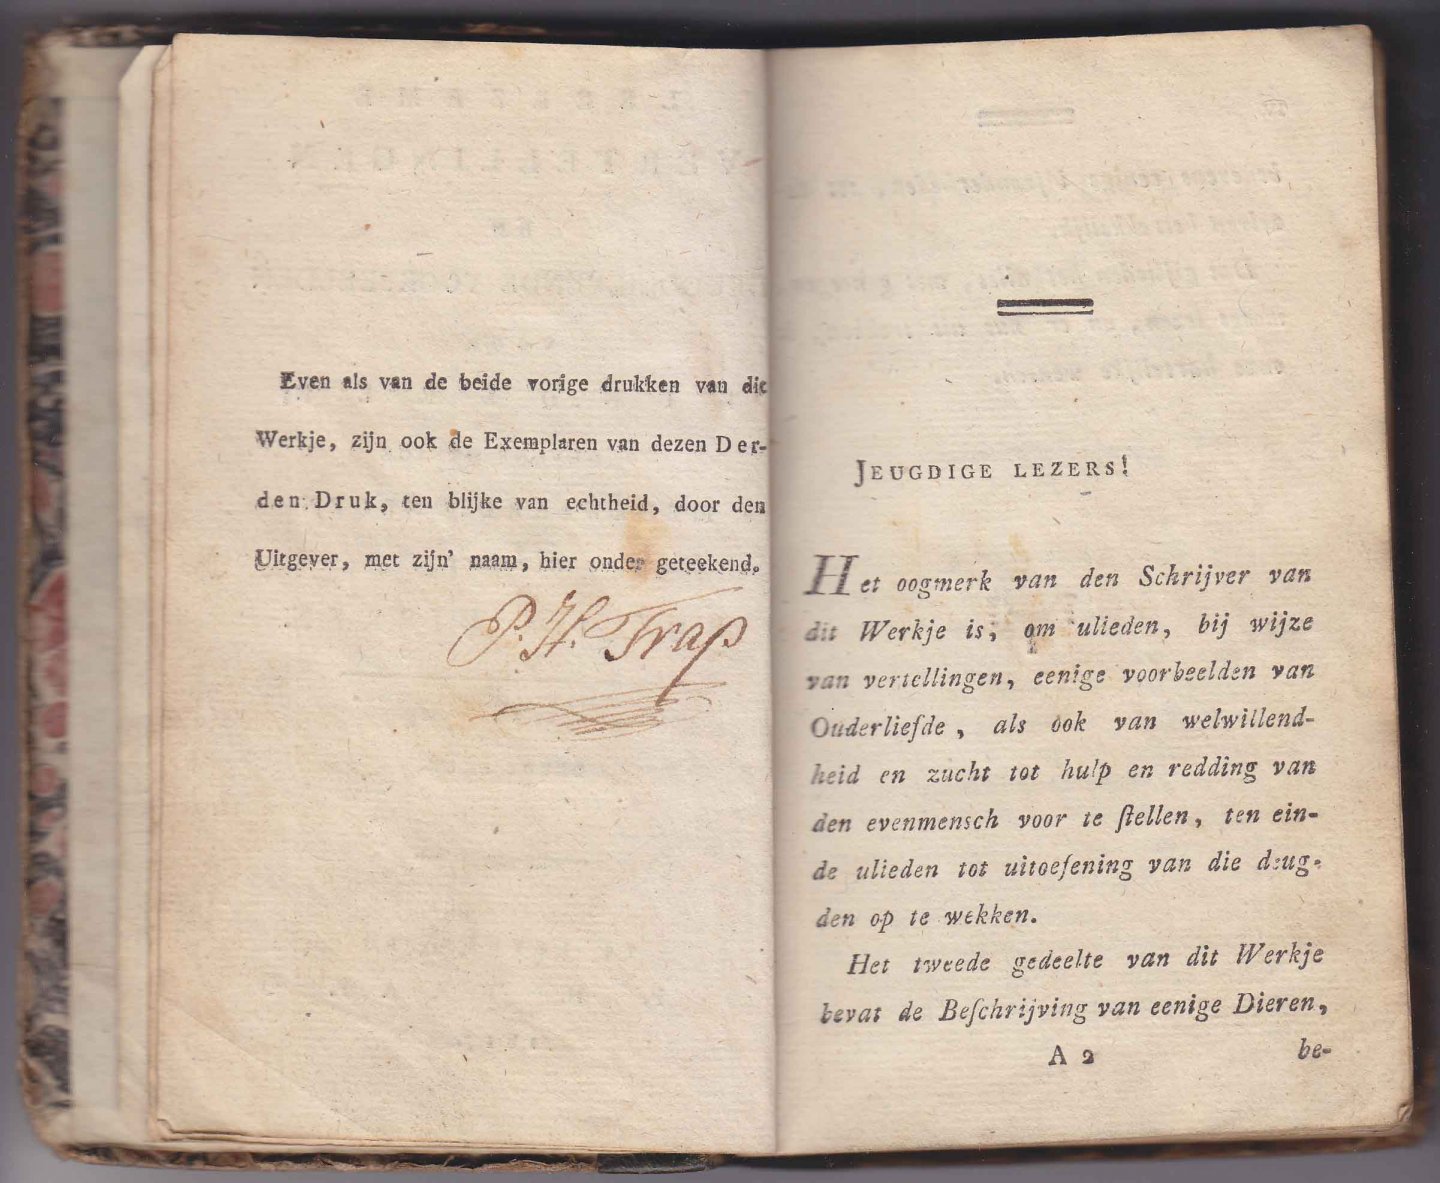 Even als van de beide vorige drukken van dit
Werkje, zijn ook de Exemplaren van dezen Der-
den Druk, ten blijke van echtheid, door den
Uitgever, met zijn' naam, hier onder geteekend.
P. H. Trap
JEUGDIGE LEZERS!
Het oogmerk van den Schrijver van
dit Werkje is, om ulieden, bij wijze
van vertellingen, eenige voorbeelden van
Ouderlieſde, als ook van welwillend-
heid en zucht tot hulp en redding van
den evenmensch voor te ſtellen, ten ein-
de ulieden tot uitoeſening van die deug-
den op te wekken.
Het tweede gedeelte van dit Werkje
bevat de Beſchrijving van eenige Dieren,
A 2 be-